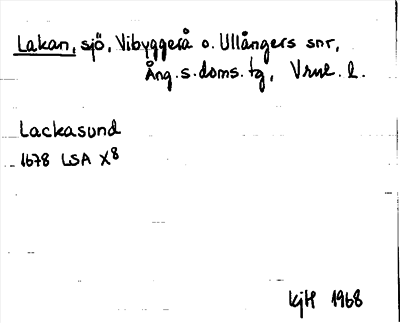 Lakan, sjö, Vibyggerå o. Ullångers snr,
Ång. s. doms. tg, Vrml. l.
Lackasund
1678 LSA X8
KjH 1968